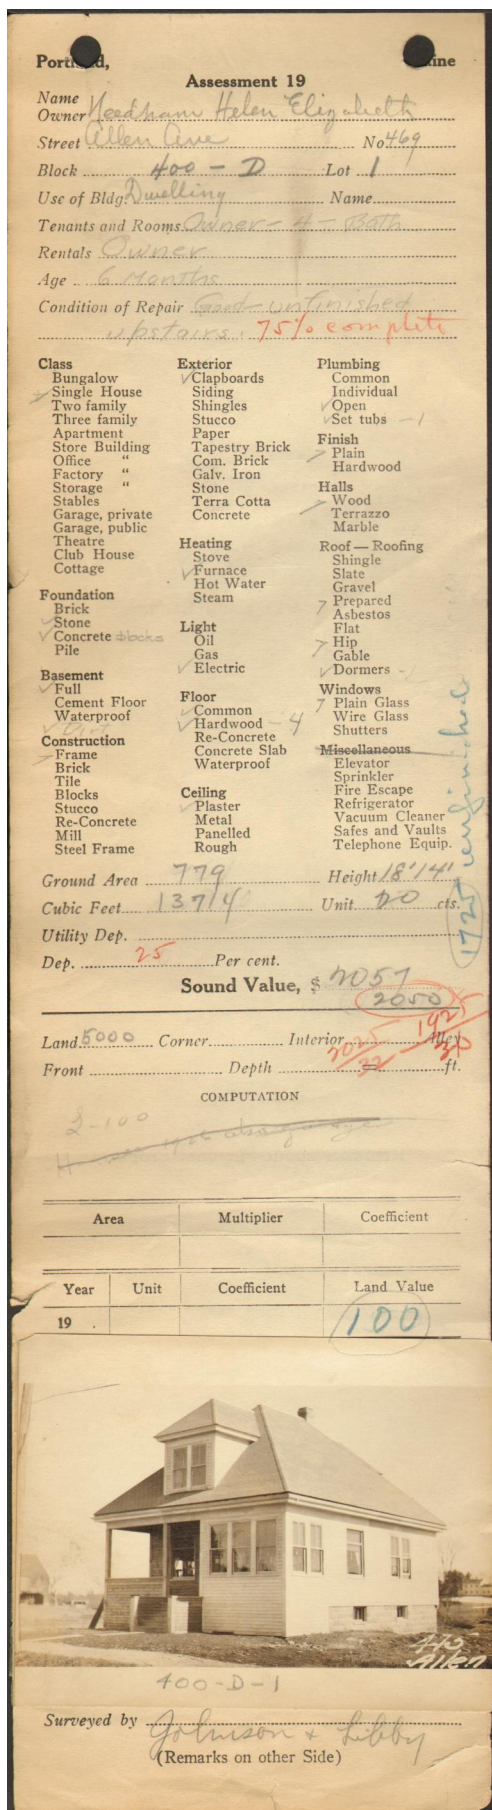 Portland, Maine
Assessment 19
Name
Owner Needham Helen Elizabeth
Street Allen Ave No 469
Block 400 - D Lot 1
Use of Bldg. Dwelling Name
Tenants and Rooms Owner - 4 - Bath
Rentals Owner
Age 6 Months
Condition of Repair Good - unfinished
upstairs. 75% complete
Class
Bungalow
Single House
Two family
Three family
Apartment
Store Building
Office "
Factory "
Storage "
Stables
Garage, private
Garage, public
Theatre
Club House
Cottage
Foundation
Brick
Stone
Concrete blocks
Pile
Basement
Full
Cement Floor
Waterproof
Construction
Frame
Brick
Tile
Blocks
Stucco
Re-Concrete
Mill
Steel Frame
Exterior
Clapboards
Siding
Shingles
Stucco
Paper
Tapestry Brick
Com. Brick
Galv. Iron
Stone
Terra Cotta
Concrete
Heating
Stove
Furnace
Hot Water
Steam
Light
Oil
Gas
Electric
Floor
Common
Hardwood - 4
Re-Concrete
Concrete Slab
Waterproof
Ceiling
Plaster
Metal
Panelled
Rough
Plumbing
Common
Individual
Open
Set tubs - 1
Finish
Plain
Hardwood
Halls
Wood
Terrazzo
Marble
Roof — Roofing
Shingle
Slate
Gravel
Prepared
Asbestos
Flat
Hip
Gable
Dormers -
Windows
Plain Glass
Wire Glass
Shutters
Miscellaneous
Elevator
Sprinkler
Fire Escape
Refrigerator
Vacuum Cleaner
Safes and Vaults
Telephone Equip.
1725 unfinished
Ground Area 779 Height 18' 14'
Cubic Feet 13714 Unit 20 cts.
Utility Dep.
Dep. 25 Per cent.
Sound Value, $ 2057
2050
Land 5000 Corner Interior Alley
2025/32 - 1925/30
Front Depth ft.
COMPUTATION
L-100
Area Multiplier Coefficient
Year Unit Coefficient Land Value
19 . 100
445
Allen
400-D-1
Surveyed by Johnson & Libby
(Remarks on other Side)